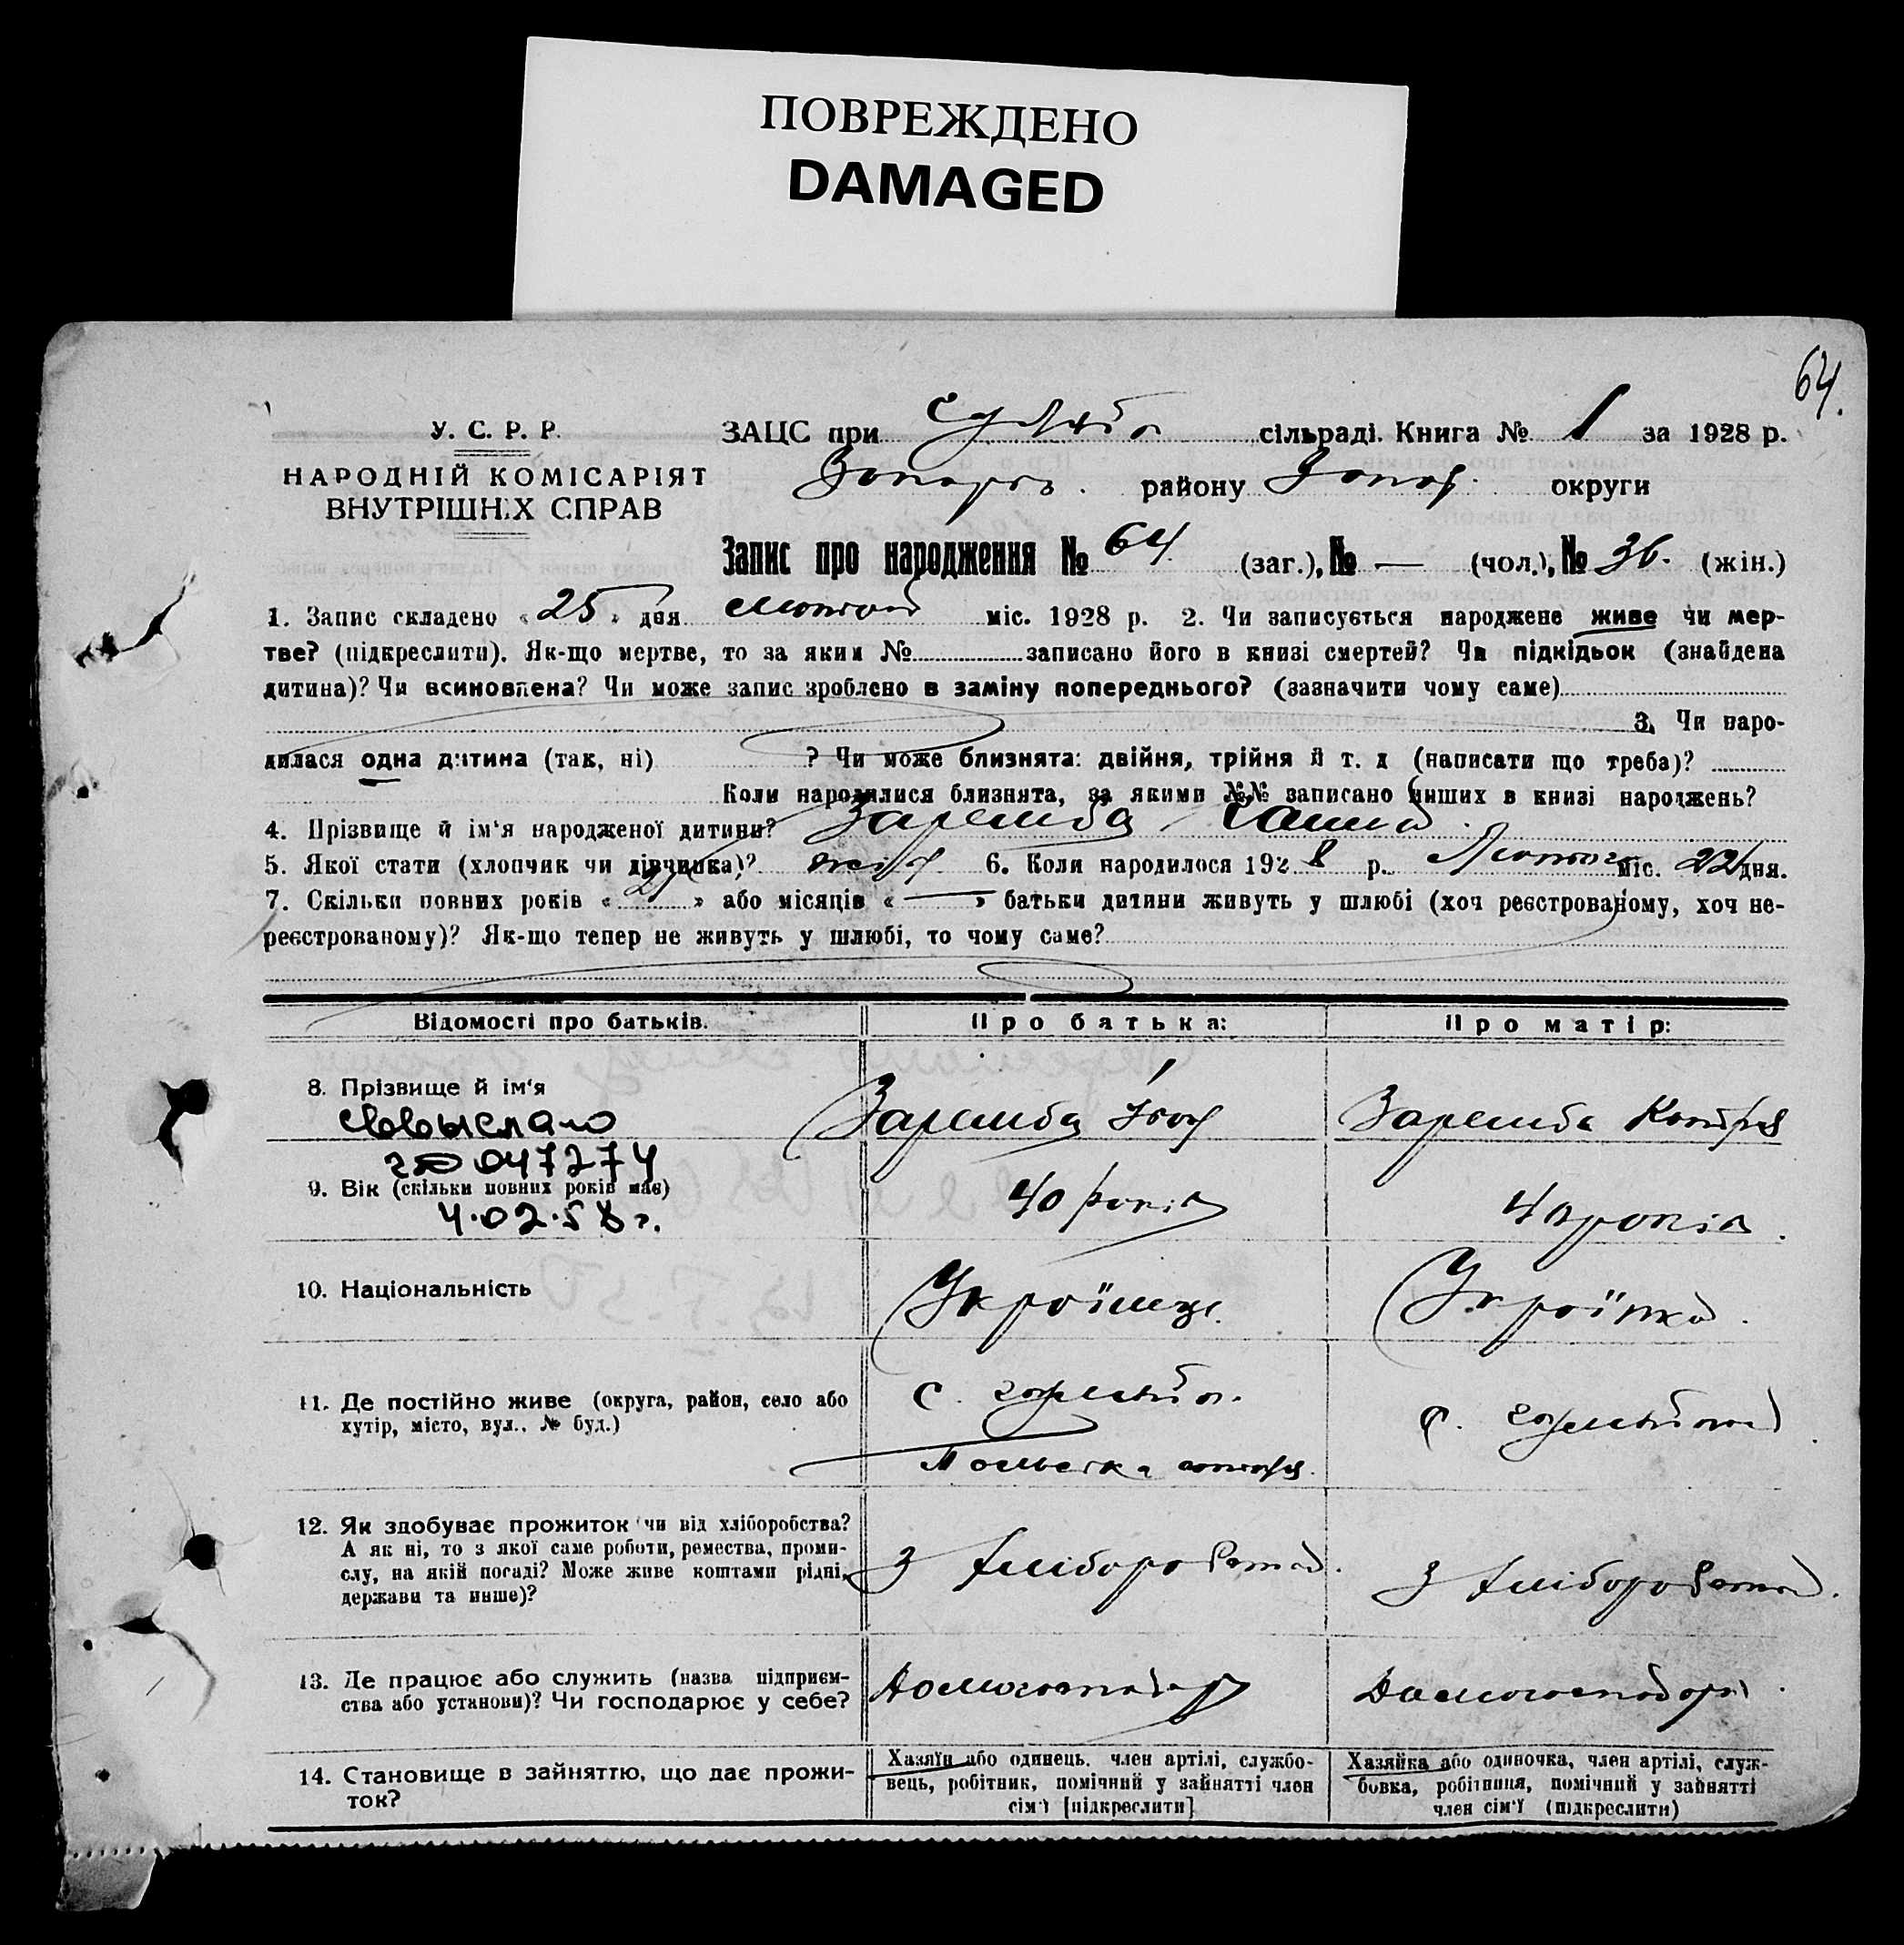 ПОВРЕЖДЕНО
DAMAGED
64.
У. С. Р. Р.
НАРОДНІЙ КОМІСАРІЯТ
ВНУТРІШНІХ СПРАВ
ЗАЦС при сільраді. Книга № 1 за 1928 р.
району Запор. округи
Запис про народження № 64 (заг.), № — (чол.), № 36. (жін.)
1. Запис складено « 25 » дня лютого міс. 1928 р. 2. Чи записується народжене живе чи мер-
тве? (підкреслити). Як-що мертве, то за яким № записано його в книзі смертей? Чи підкідьок (знайдена
дитина)? Чи всиновлена? Чи може запис зроблено в заміну попереднього? (зазначити чому саме)
3. Чи наро-
дилася одна дитина (так, ні) ? Чи може близнята: двійня, трійня й т. д (написати що треба)?
Коли народилися близнята, за якими №№ записано инших в книзі народжень?
4. Прізвище й ім'я народженої дитини? Заремба Ганна
5. Якої стати (хлопчик чи дівчинка)? жін. 6. Коли народилося 1928 р. Лютого міс. 22 дня.
7. Скільки повних років « » або місяців « — » батьки дитини живуть у шлюбі (хоч реєстрованому, хоч не-
реєстрованому)? Як-що тепер не живуть у шлюбі, то чому саме?
Відомості про батьків. Про батька: Про матір:
8. Прізвище й ім'я Заремба Заремба
св выслано
047274
9. Вік (скільки повних років має) 40 років 40 років
4.02.58 г.
10. Національність Українець. Українка.
11. Де постійно живе (округа, район, село або
хутір, місто, вул., № буд.) с. с.
12. Як здобуває прожиток чи від хліборобства?
А як ні, то з якої саме роботи, ремества, проми-
слу, на якій посаді? Може живе коштами рідні,
держави та инше)? З хліборобства. З хліборобства.
13. Де працює або служить (назва підприєм-
ства або установи)? Чи господарює у себе? Домогосподар Домогосподарка
14. Становище в зайняттю, що дає прожи-
ток?
Хазяїн або одинець. член артілі, службо-
вець, робітник, помічний у зайнятті член
сім'ї [підкреслити]
Хазяйка або одиночка, член артілі, служ-
бовка, робітниця, помічний у зайнятті
член сім'ї (підкреслити)